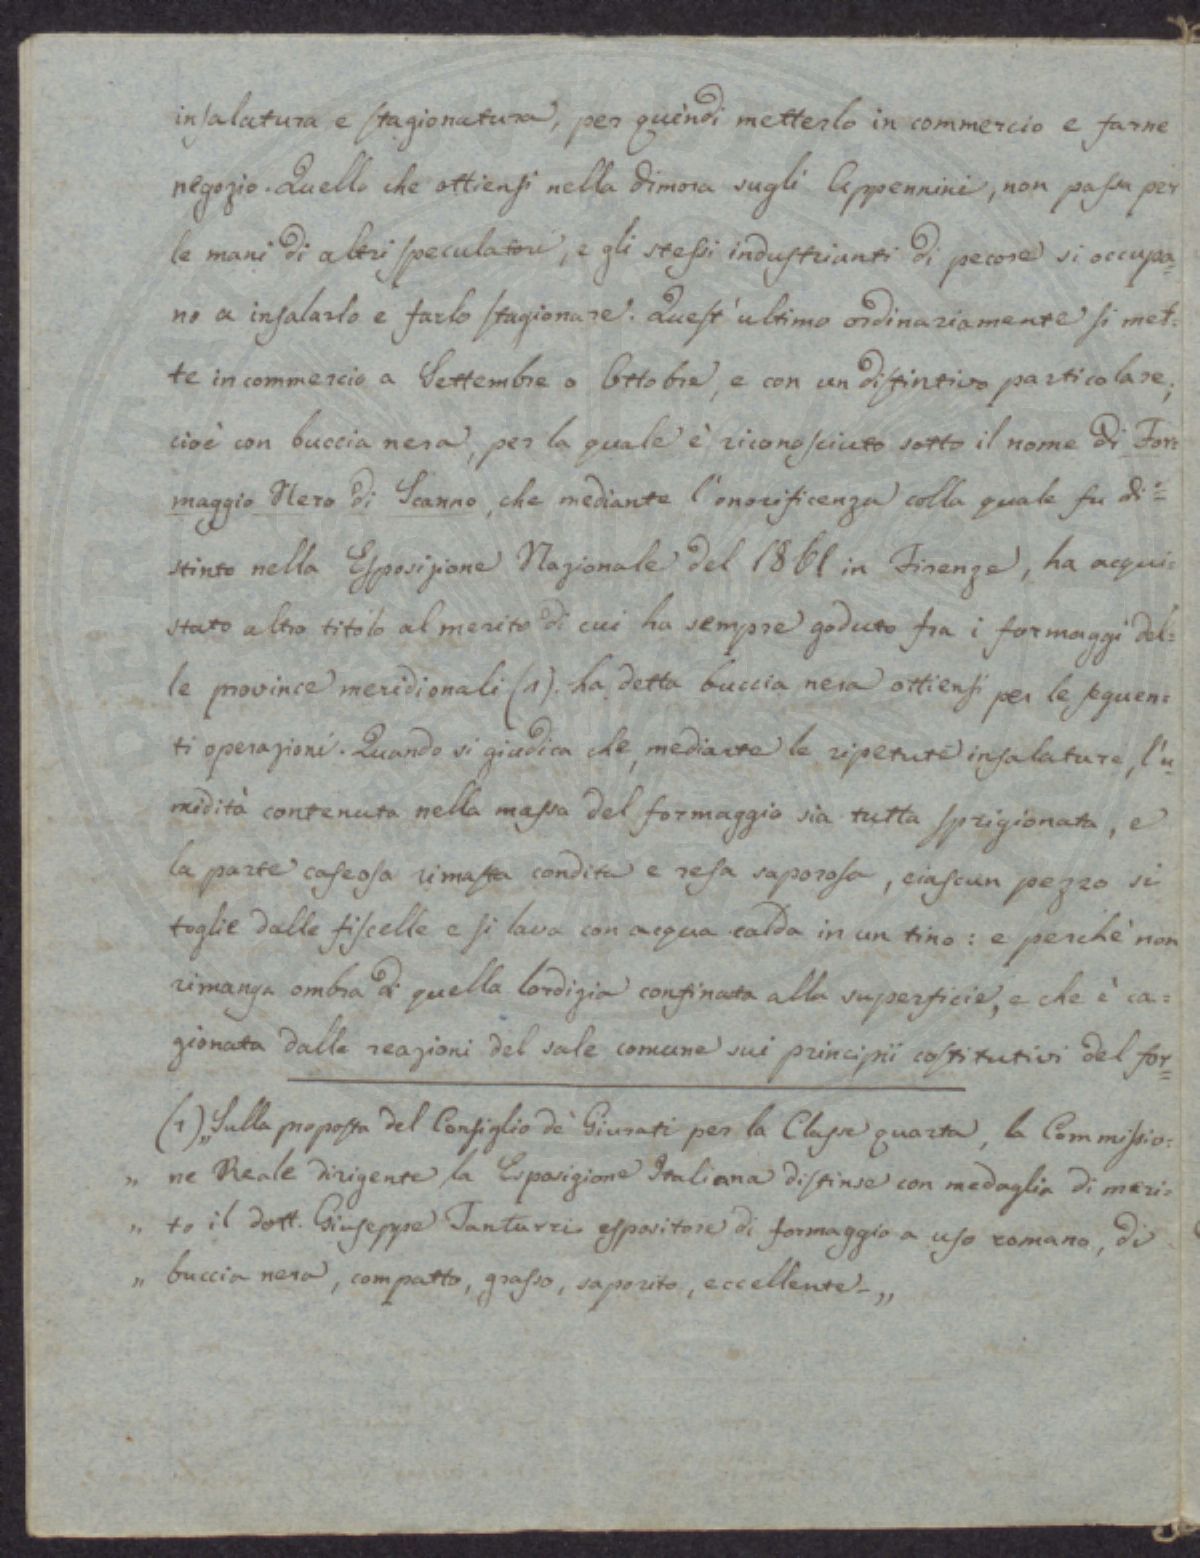 insalatura e stagionatura, per quindi metterlo in commercio e farne
negozio. Quello che ottiensi nella dimora sugli Appennini, non passa per
le mani di altri speculatori, e gli stessi industrianti di pecore si occupa=
no a insalarlo e farlo stagionare. Quest'ultimo ordinariamente si met=
te in commercio a Settembre o Ottobre, e con un distintivo particolare,
cioè con buccia nera, per la quale è riconosciuto sotto il nome di For=
maggio Nero di Scanno, che mediante l'onorificenza colla quale fu di=
stinto nella Esposizione Nazionale del 1861 in Firenze, ha acqui=
stato altro titolo al merito di cui ha sempre goduto fra i formaggi del=
le province meridionali (1). La detta buccia nera ottiensi per le seguen=
ti operazioni. Quando si giudica che, mediante le ripetute insalature, l'u=
midità contenuta nella massa del formaggio sia tutta sprigionata, e
la parte caseosa rimasta condita e resa saporosa, ciascun pezzo si
toglie dalle fiscelle e si lava con acqua calda in un tino: e perchè non
rimanga ombra di quella lordizia confinata alla superficie, e che è ca=
gionata dalle reazioni del sale comune sui principii costitutivi del for=
(1) „Sulla proposta del Consiglio de' Giurati per la Classe quarta, la Commissio=
„ ne Reale dirigente la Esposizione Italiana distinse con medaglia di meri=
„ to il dott. Giuseppe Tanturri espositore di formaggio a uso romano, di
„ buccia nera, compatto, grasso, saporito, eccellente-„